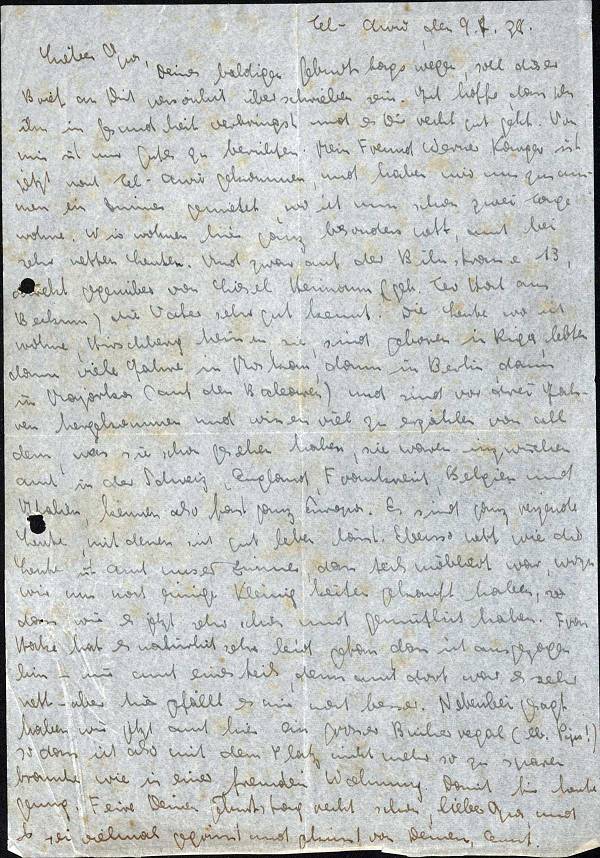 Tel-Aviv, den 9.2.38.
Lieber Opa,
Deines baldigen Geburtstags wegen, soll dieser
Brief an Dich persönlich überschrieben sein. Ich hoffe, dass Du
ihn in Gesundheit verbringst und es Dir recht gut geht. Von
mir ist nur Gutes zu berichten. Mein Freund Werner ist
jetzt nach Tel-Aviv gekommen, und haben wir uns zusam-
men ein Zimmer gemietet, wo ich nun schon zwei Tage
wohne. Wir wohnen hier ganz besonders nett, auch bei
sehr netten Leuten. Und zwar auf der Bilustrasse 13,
direkt gegenüber von Liesel Heimann (geb. Ter Horst aus
Beckum) die Vater sehr gut kennt. Die Leute wo ich
wohne, Hirschberg heissen sie, sind geboren in Riga, lebten
dann viele Jahre in Moskau, dann in Berlin, dann
in Mayorka (auf den Balearen) und sind vor drei Jah-
ren hergekommen und wissen viel zu erzählen von all
dem, was sie schon gesehen haben, sie waren inzwischen
auch in der Schweiz, England, Frankreich, Belgien und
Italien, kennen also fast ganz Europa. Es sind ganz reizende
Leute, mit denen sich gut leben lässt. Ebenso nett wie die
Leute ist auch unser Zimmer, dass teils möbliert war, wozu
wir uns noch einige Kleinigkeiten gekauft haben, so
dass wir es jetzt sehr schön und gemütlich haben. Frau
hat es natürlich sehr leid getan dass ich ausgezogen
bin - mir auch einesteils, denn auch dort war es sehr
nett - aber hier gefällt es mir noch besser. Nebenbei gesagt
haben wir jetzt auch hier ein grosser Bücherregal
so dass ich also mit dem Platz nicht mehr so zu sparen
brauche wie in einer fremden Wohnung. Damit für heute
genug. Feire Deinen Geburtstag recht schön, lieber Opa und
sei vielmals gegrüsst und geküsst von Deinem